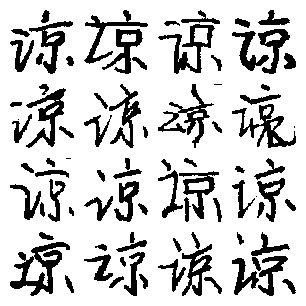 谅谅谅谅
谅谅谅谅
谅谅谅谅
谅谅谅谅